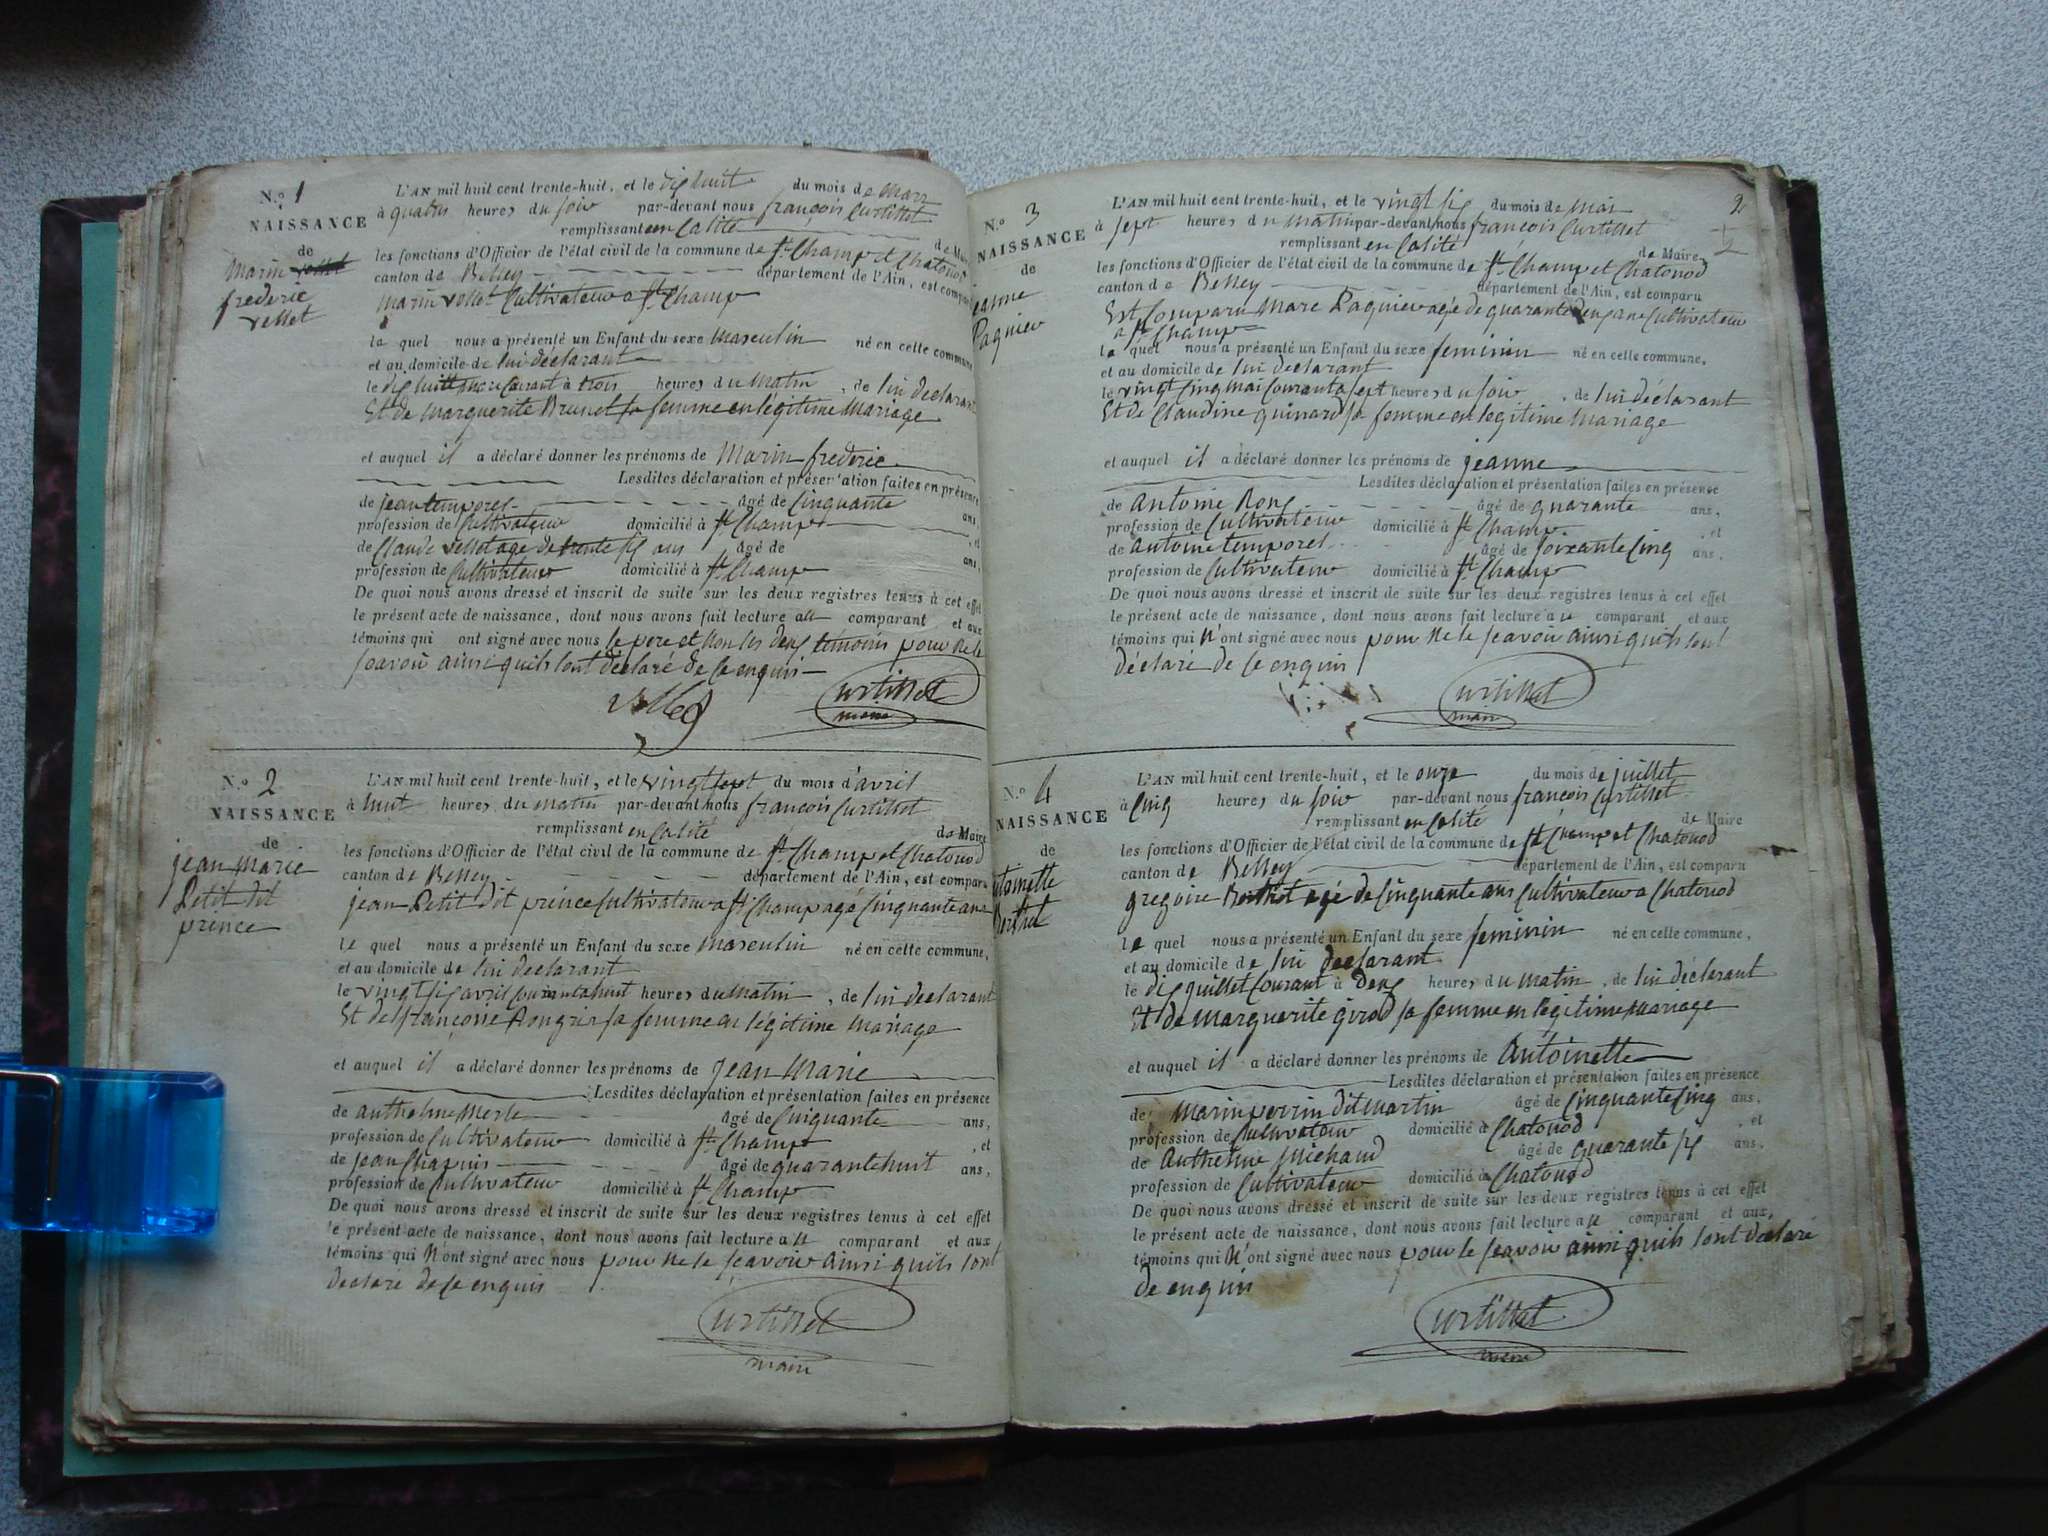 N.o 1
NAISSANCE
de
Marin
frederic
vellet
L'AN mil huit cent trente-huit, et le dixhuit du mois de Mars
à quatre heures du soir par-devant nous françois Curtillet
remplissant en Calité de Maire
les fonctions d'Officier de l'état civil de la commune de St. Champ et Chatonod
canton de Belley département de l'Ain, est comparu
marin vellet Cultivateur a St. Champ
le quel nous a présenté un Enfant du sexe masculin né en cette commune
et au domicile de lui declarant
le dix huit mars Courant à trois heures du matin, de lui declarant
Et de marguerite Brunet sa femme en légitime Mariage
et auquel il a déclaré donner les prénoms de Marin frederic
Lesdites déclaration et présentation faites en présence
de jean temporel âgé de Cinquante ans,
profession de Cultivateur domicilié à St. Champ, et
de Claude vellet agé de trente six ans âgé de ans,
profession de Cultivateur domicilié à St. Champ
De quoi nous avons dressé et inscrit de suite sur les deux registres tenus à cet effet
le présent acte de naissance, dont nous avons fait lecture au comparant et aux
témoins qui ont signé avec nous le pere et non les deux temoins pour ne le
sçavoir ainsi quils sont déclaré de ce enquis
vellet Curtillet
maire
N.o 2
NAISSANCE
de
jean Marie
Petit dit
prince
L'AN mil huit cent trente-huit, et le vingt sept du mois d'avril
à huit heures du matin par-devant nous françois Curtillet
remplissant en Calité de Maire
les fonctions d'Officier de l'état civil de la commune de St. Champ et Chatonod
canton de Belley département de l'Ain, est comparu
jean Petit Dit prince Cultivateur a St. Champ agé Cinquante ans
le quel nous a présenté un Enfant du sexe masculin né en cette commune,
et au domicile de lui declarant
le vingt six avril Courant a huit heures du matin, de lui declarant
Et de françoise sa femme en légitime Mariage
et auquel il a déclaré donner les prénoms de Jean Marie
Lesdites déclaration et présentation faites en présence
de anthelme Merle âgé de Cinquante ans,
profession de Cultivateur domicilié à St. Champ, et
de jean Chapuis âgé de quarante huit ans,
profession de Cultivateur domicilié à St. Champ
De quoi nous avons dressé et inscrit de suite sur les deux registres tenus à cet effet
le présent acte de naissance, dont nous avons fait lecture au comparant et aux
témoins qui N'ont signé avec nous pour ne le sçavoir ainsi quils sont
declaré de ce enquis
Curtillet
maire
2
N.o 3
NAISSANCE
de
jeanne
Paquier
L'AN mil huit cent trente-huit, et le vingt six du mois de Mai
à sept heures du matin par-devant nous françois Curtillet
remplissant en Calité de Maire
les fonctions d'Officier de l'état civil de la commune de St. Champ et Chatonod
canton de Belley département de l'Ain, est comparu
Est Comparu Marc Paquier agé de quarante deux ans Cultivateur
a St. Champ
le quel nous a présenté un Enfant du sexe feminin né en cette commune,
et au domicile de lui declarant
le vingt Cinq mai Courant a sept heures du soir, de lui déclarant
Et de Claudine guinard sa femme en legitime Mariage
et auquel il a déclaré donner les prénoms de jeanne
Lesdites déclaration et présentation faites en présence
de antoine Rong âgé de quarante ans,
profession de Cultivateur domicilié à St. Champ, et
de antoine temporel âgé de soixante Cinq ans,
profession de Cultivateur domicilié à St. Champ
De quoi nous avons dressé et inscrit de suite sur les deux registres tenus à cet effet
le présent acte de naissance, dont nous avons fait lecture au comparant et aux
témoins qui N'ont signé avec nous pour ne le sçavoir ainsi quils sont
déclaré de ce enquis
Curtillet
maire
N.o 4
NAISSANCE
de
antoinette
Berthet
L'AN mil huit cent trente-huit, et le onze du mois de juillet
à Cinq heures du soir par-devant nous françois Curtillet
remplissant en Calité de Maire
les fonctions d'Officier de l'état civil de la commune de St. Champ et Chatonod
canton de Belley département de l'Ain, est comparu
gregoire Berthet agé de Cinquante ans Cultivateur a Chatonod
le quel nous a présenté un Enfant du sexe feminin né en cette commune,
et au domicile de lui declarant
le dix juillet Courant à deux heures du matin, de lui déclarant
Et de marguerite girod sa femme en légitime Mariage
et auquel il a déclaré donner les prénoms de Antoinette
Lesdites déclaration et présentation faites en présence
de Marin perrin dit martin âgé de Cinquante Cinq ans,
profession de Cultivateur domicilié à Chatonod, et
de Anthelme Michaud âgé de quarante six ans,
profession de Cultivateur domicilié à Chatonod
De quoi nous avons dressé et inscrit de suite sur les deux registres tenus à cet effet
le présent acte de naissance, dont nous avons fait lecture au comparant et aux,
témoins qui N'ont signé avec nous pour le sçavoir ainsi quils sont declaré
de enquis
Curtillet
maire